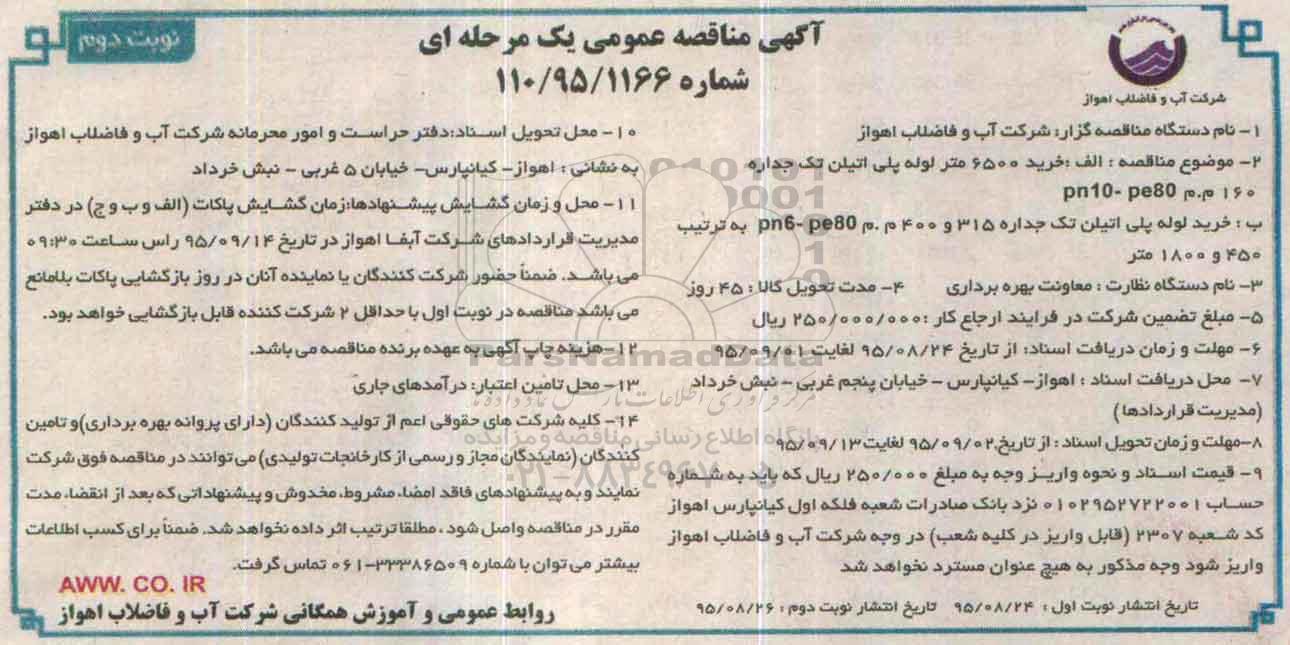 نوبت دوم
آگهی مناقصه عمومی یک مرحله ای
شماره ۱۱۰/۹۵/۱۱۶۶
شرکت آب و فاضلاب اهواز
۱- نام دستگاه مناقصه گزار: شرکت آب و فاضلاب اهواز
۲- موضوع مناقصه : الف :خرید ۶۵۰۰ متر لوله پلی اتیلن تک جداره
۱۶۰ م.م pn10- pe80
ب : خرید لوله پلی اتیلن تک جداره ۳۱۵ و ۴۰۰ م.م pn6- pe80 به ترتیب
۴۵۰ و ۱۸۰۰ متر
۳- نام دستگاه نظارت : معاونت بهره برداری ۴- مدت تحویل کالا : ۴۵ روز
۵- مبلغ تضمین شرکت در فرایند ارجاع کار :۲۵۰/۰۰۰/۰۰۰ ریال
۶- مهلت و زمان دریافت اسناد: از تاریخ ۹۵/۰۸/۲۴ لغایت ۹۵/۰۹/۰۱
۷- محل دریافت اسناد : اهواز- کیانپارس - خیابان پنجم غربی - نبش خرداد
(مدیریت قراردادها)
۸-مهلت و زمان تحویل اسناد : از تاریخ ۹۵/۰۹/۰۲ لغایت ۹۵/۰۹/۱۳
۹- قیمت اسناد و نحوه واریز وجه به مبلغ ۲۵۰/۰۰۰ ریال که باید به شماره
حساب ۰۱۰۲۹۵۲۷۲۲۰۰۱ نزد بانک صادرات شعبه فلکه اول کیانپارس اهواز
کد شعبه ۲۳۰۷ (قابل واریز در کلیه شعب) در وجه شرکت آب و فاضلاب اهواز
واریز شود وجه مذکور به هیچ عنوان مسترد نخواهد شد
تاریخ انتشار نوبت اول : ۹۵/۰۸/۲۴ تاریخ انتشار نوبت دوم : ۹۵/۰۸/۲۶
۱۰- محل تحویل اسناد:دفتر حراست و امور محرمانه شرکت آب و فاضلاب اهواز
به نشانی : اهواز- کیانپارس- خیابان ۵ غربی - نبش خرداد
۱۱- محل و زمان گشایش پیشنهادها:زمان گشایش پاکات (الف و ب و ج) در دفتر
مدیریت قراردادهای شرکت آبفا اهواز در تاریخ ۹۵/۰۹/۱۴ راس ساعت ۰۹:۳۰
می باشد. ضمناً حضور شرکت کنندگان یا نماینده آنان در روز بازگشایی پاکات بلامانع
می باشد مناقصه در نوبت اول با حداقل ۲ شرکت کننده قابل بازگشایی خواهد بود.
۱۲-هزینه چاپ آگهی به عهده برنده مناقصه می باشد.
۱۳- محل تامین اعتبار: درآمدهای جاری
۱۴- کلیه شرکت های حقوقی اعم از تولید کنندگان (دارای پروانه بهره برداری)و تامین
کنندگان (نمایندگان مجاز و رسمی از کارخانجات تولیدی) می توانند در مناقصه فوق شرکت
نمایند و به پیشنهادهای فاقد امضا، مشروط، مخدوش و پیشنهاداتی که بعد از انقضا، مدت
مقرر در مناقصه واصل شود ، مطلقا ترتیب اثر داده نخواهد شد. ضمناً برای کسب اطلاعات
بیشتر می توان با شماره ۳۳۳۸۶۵۰۹-۰۶۱ تماس گرفت.
AWW. CO. IR
روابط عمومی و آموزش همگانی شرکت آب و فاضلاب اهواز
ParsNamadData
مرکز فرآوری اطلاعات پارس نماد داده ها
پایگاه اطلاع رسانی مناقصه و مزایده